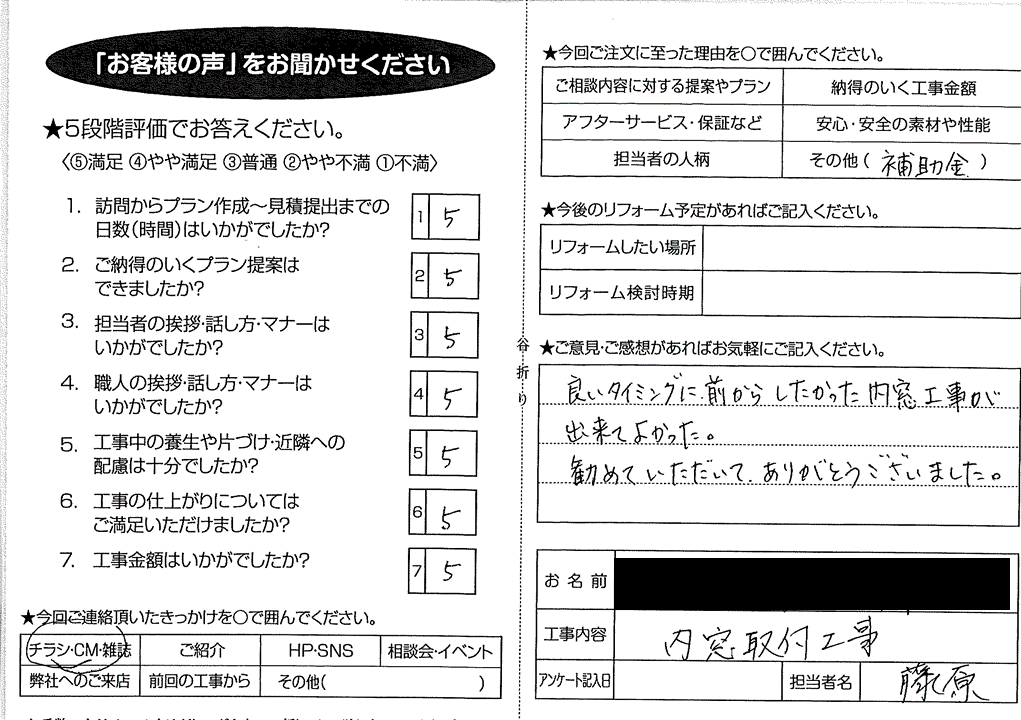 「お客様の声」をお聞かせください
★5段階評価でお答えください。
〈⑤満足 ④やや満足 ③普通 ②やや不満 ①不満〉
1. 訪問からプラン作成～見積提出までの
日数(時間)はいかがでしたか?
1 5
2. ご納得のいくプラン提案は
できましたか?
2 5
3. 担当者の挨拶・話し方・マナーは
いかがでしたか?
3 5
4. 職人の挨拶・話し方・マナーは
いかがでしたか?
4 5
5. 工事中の養生や片づけ・近隣への
配慮は十分でしたか?
5 5
6. 工事の仕上がりについては
ご満足いただけましたか?
6 5
7. 工事金額はいかがでしたか?
7 5
★今回ご連絡頂いたきっかけを○で囲んでください。
チラシ・CM・雑誌 ご紹介 HP・SNS 相談会・イベント
弊社へのご来店 前回の工事から その他( )
谷折り
★今回ご注文に至った理由を○で囲んでください。
ご相談内容に対する提案やプラン 納得のいく工事金額
アフターサービス・保証など 安心・安全の素材や性能
担当者の人柄 その他( 補助金 )
★今後のリフォーム予定があればご記入ください。
リフォームしたい場所
リフォーム検討時期
★ご意見・ご感想があればお気軽にご記入ください。
良いタイミングに前からしたかった内窓工事が
出来てよかった。
勧めていただいて、ありがとうございました。
お名前
工事内容 内窓取付工事
アンケート記入日 担当者名 藤原